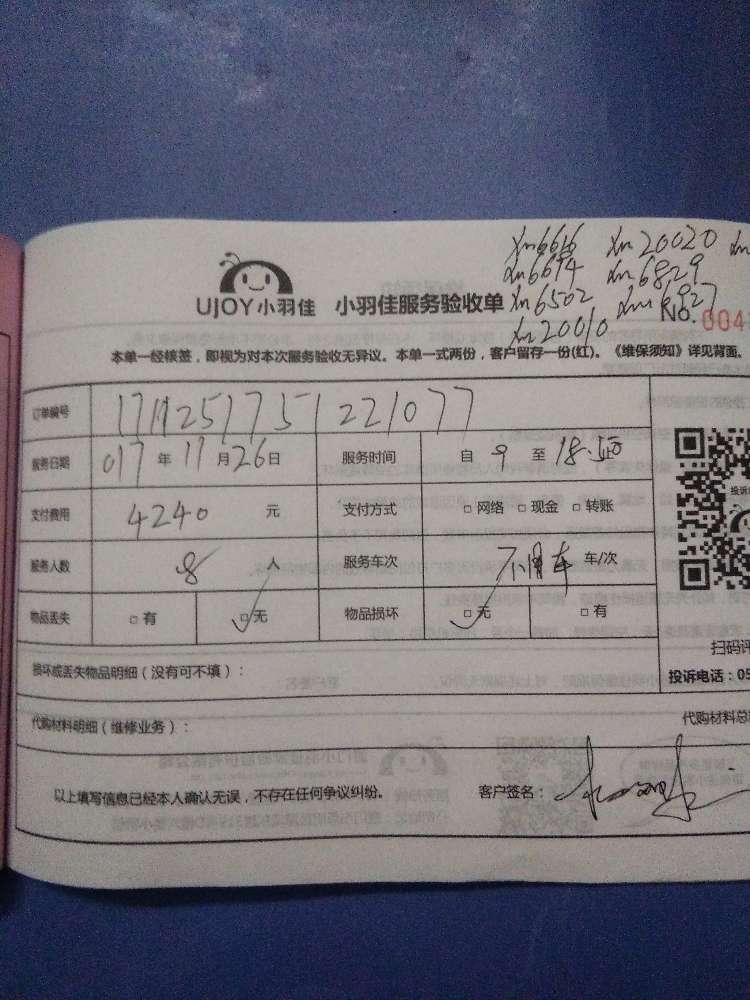 xm6616 xm20020
xm6694 xm6829
xm6502 xm6827
xm20010
UJOY小羽佳 小羽佳服务验收单
No.004
本单一经核签，即视为对本次服务验收无异议。本单一式两份，客户留存一份(红)。《维保须知》详见背面。
订单编号 1711251751221077
服务日期 017年11月26日 服务时间 自9至18:
支付费用 4240元 支付方式 □网络 □现金 □转账
服务人数 8人 服务车次 不用车 车/次
物品丢失 □有 □无 物品损坏 □无 □有
损坏或丢失物品明细（没有可不填）：
代购材料明细（维修业务）： 代购材料总
以上填写信息已经本人确认无误，不存在任何争议纠纷。 客户签名：
投诉
扫码评
投诉电话：05